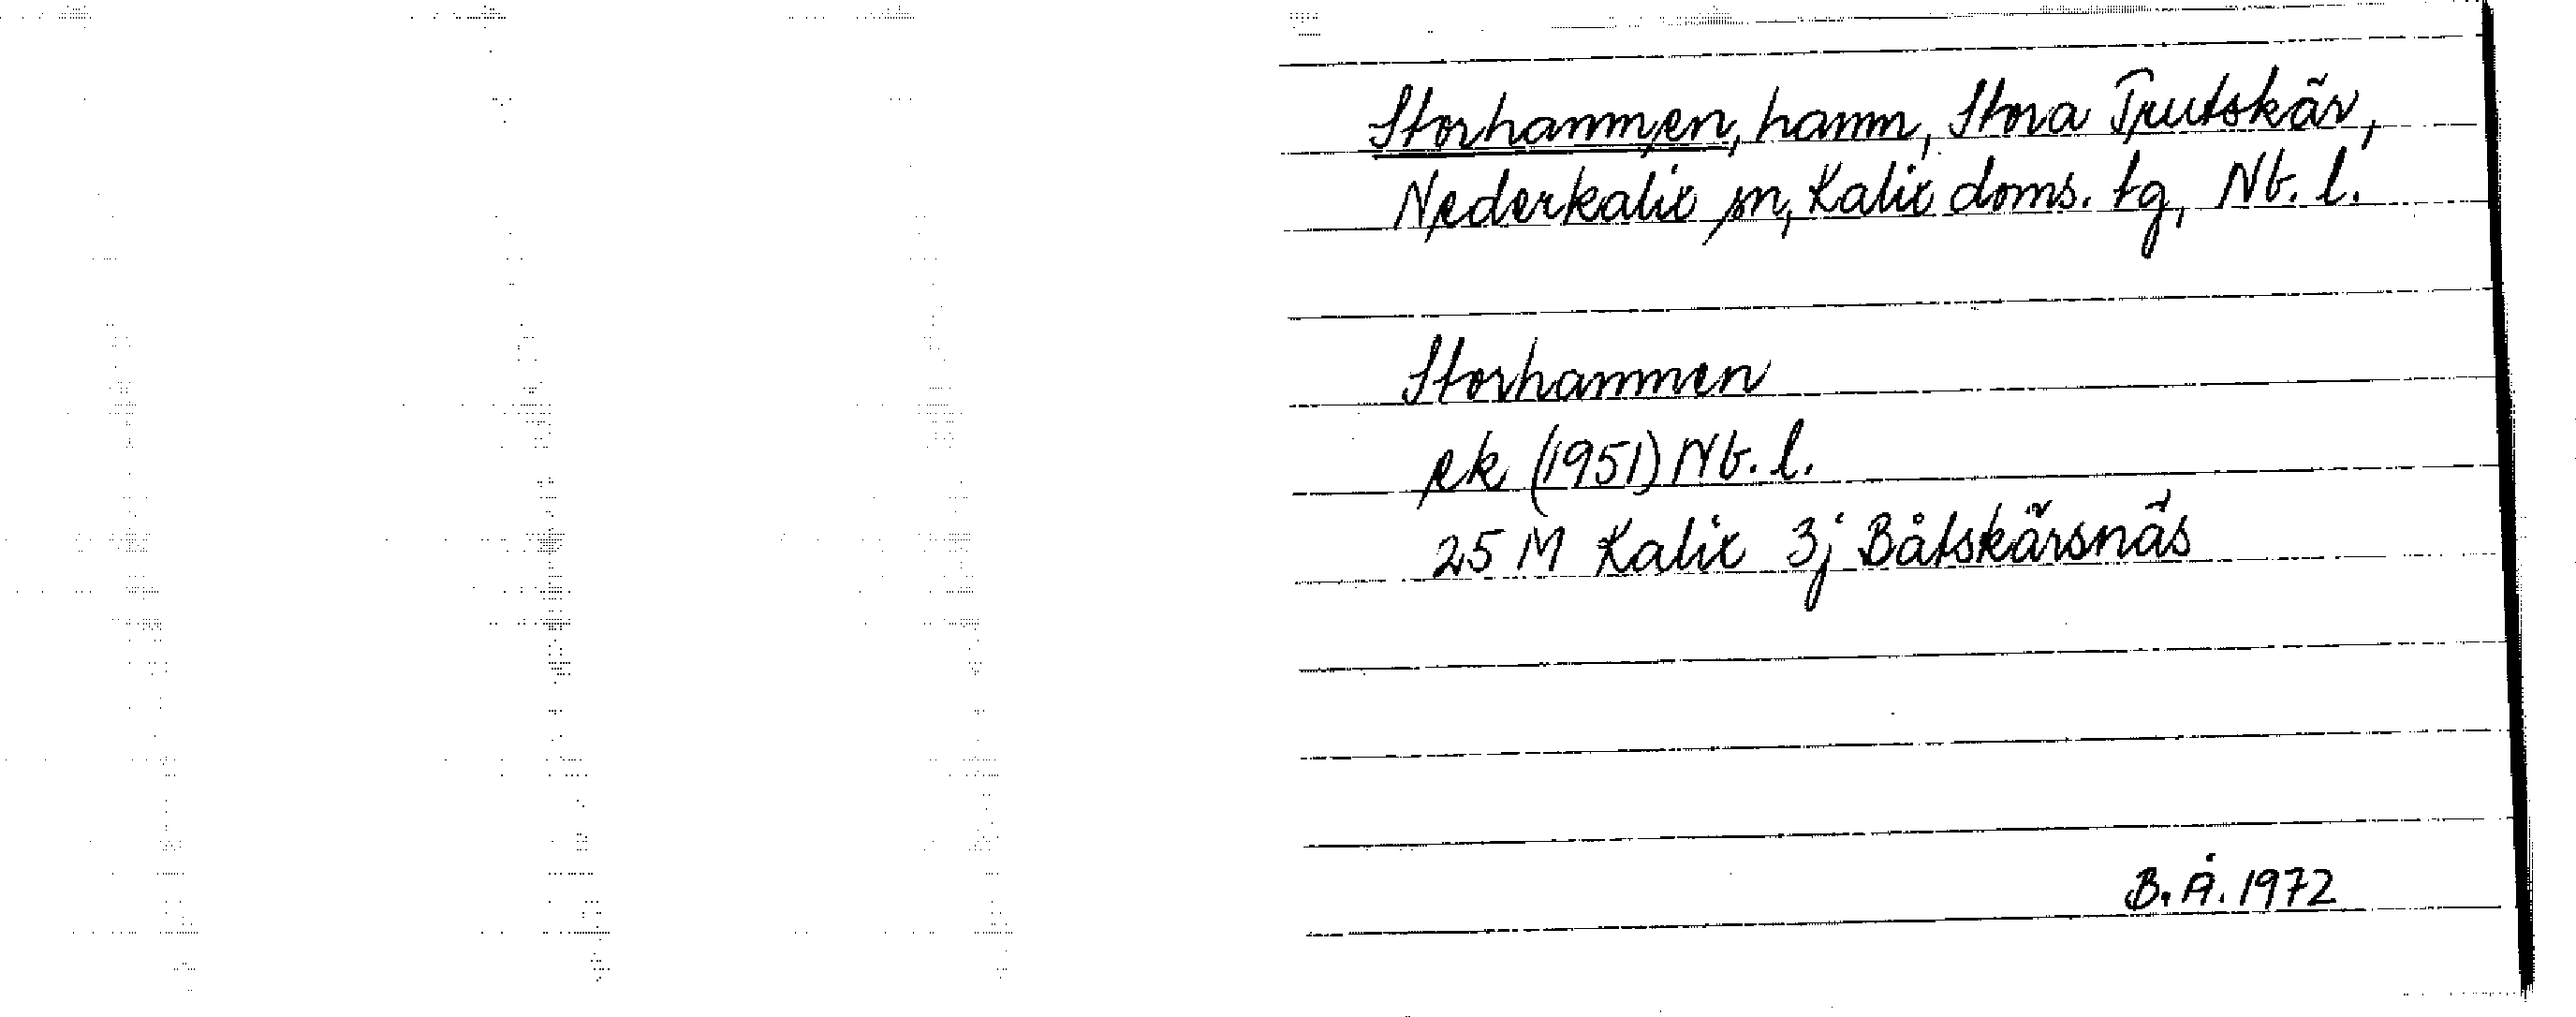 Storhamnen, hamn, Stora Trutskär,
Nederkalix sn, Kalix doms. tg, Nb. l.
Storhamnen
ek (1951) Nb. l.
25 M Kalix 3j Båtskärsnäs
B.Å. 1972